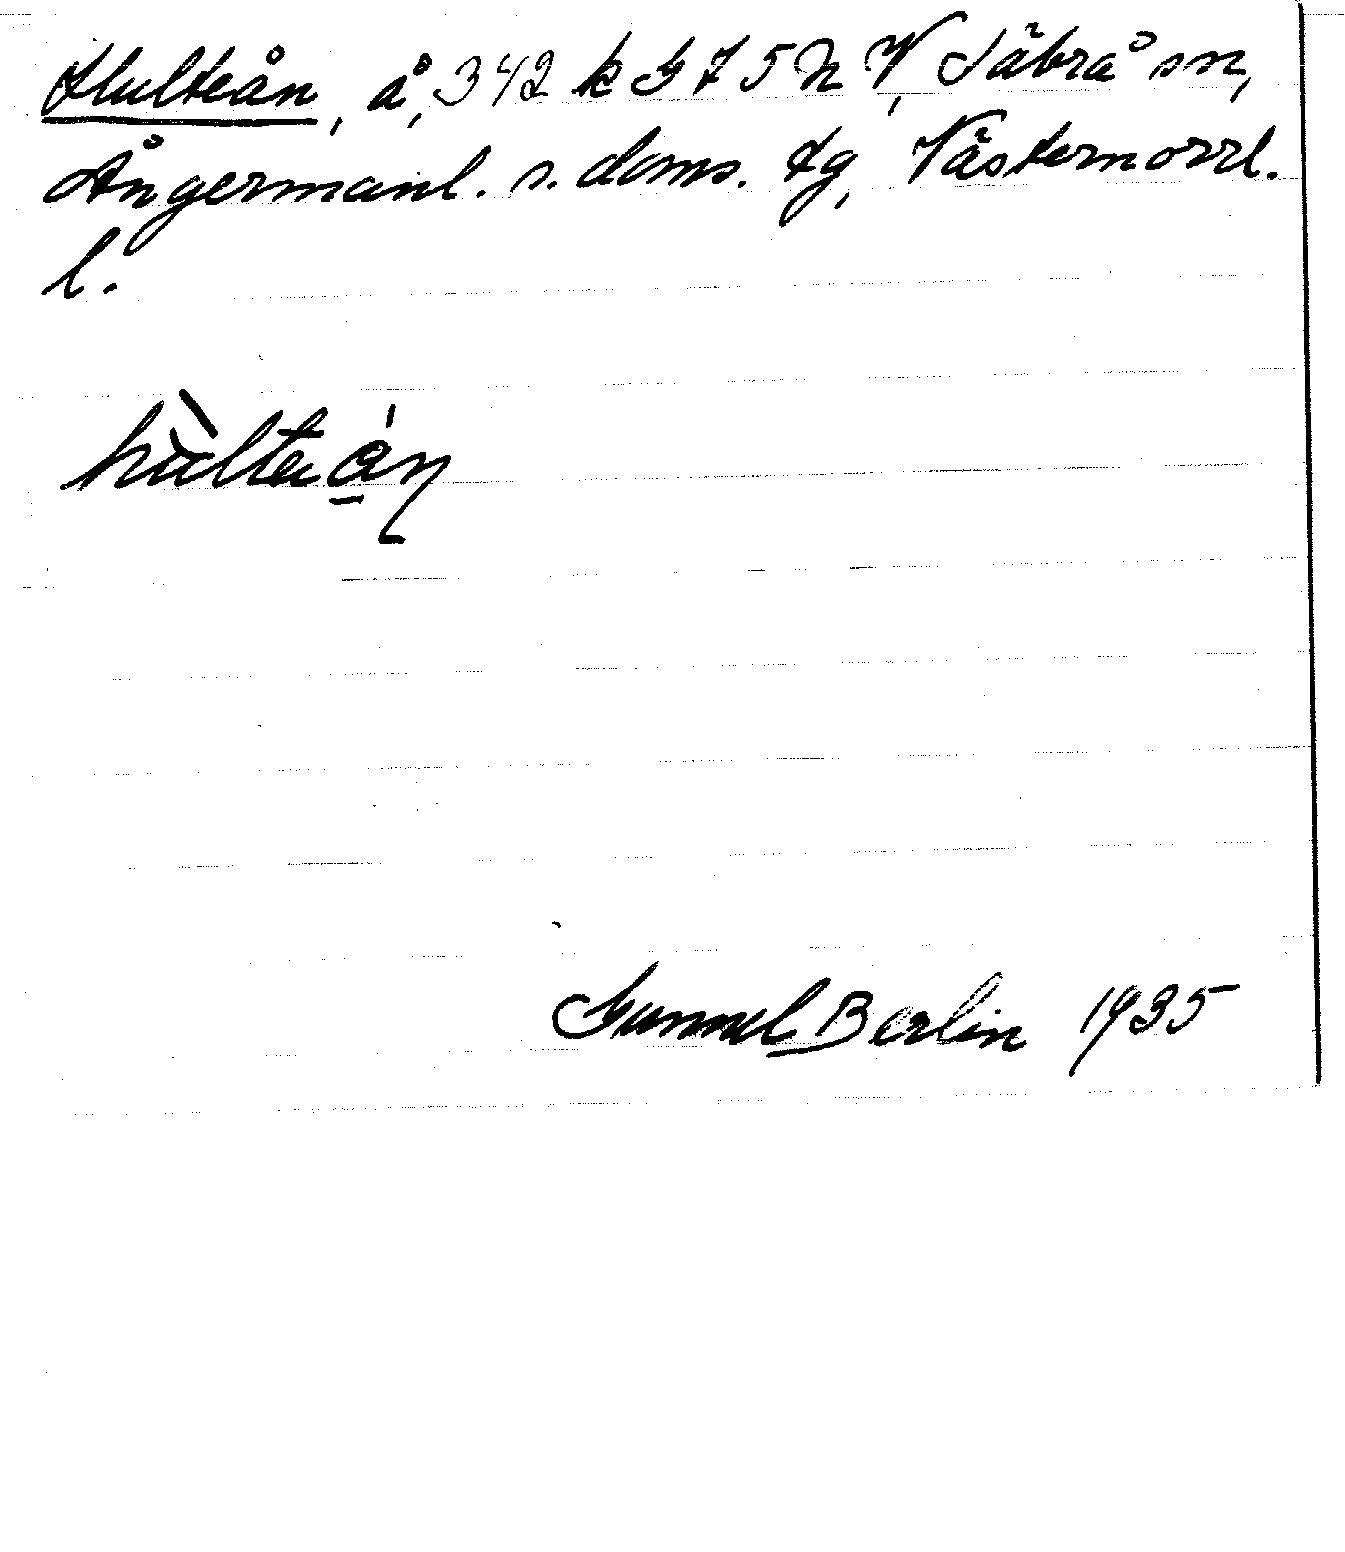 Hulteån, å, 342 k G 7 5 N V, Säbrå sn,
Ångermanl. s. doms. tg, Västernorrl.
l.
hùlteán
Gunnel Berlin 1935